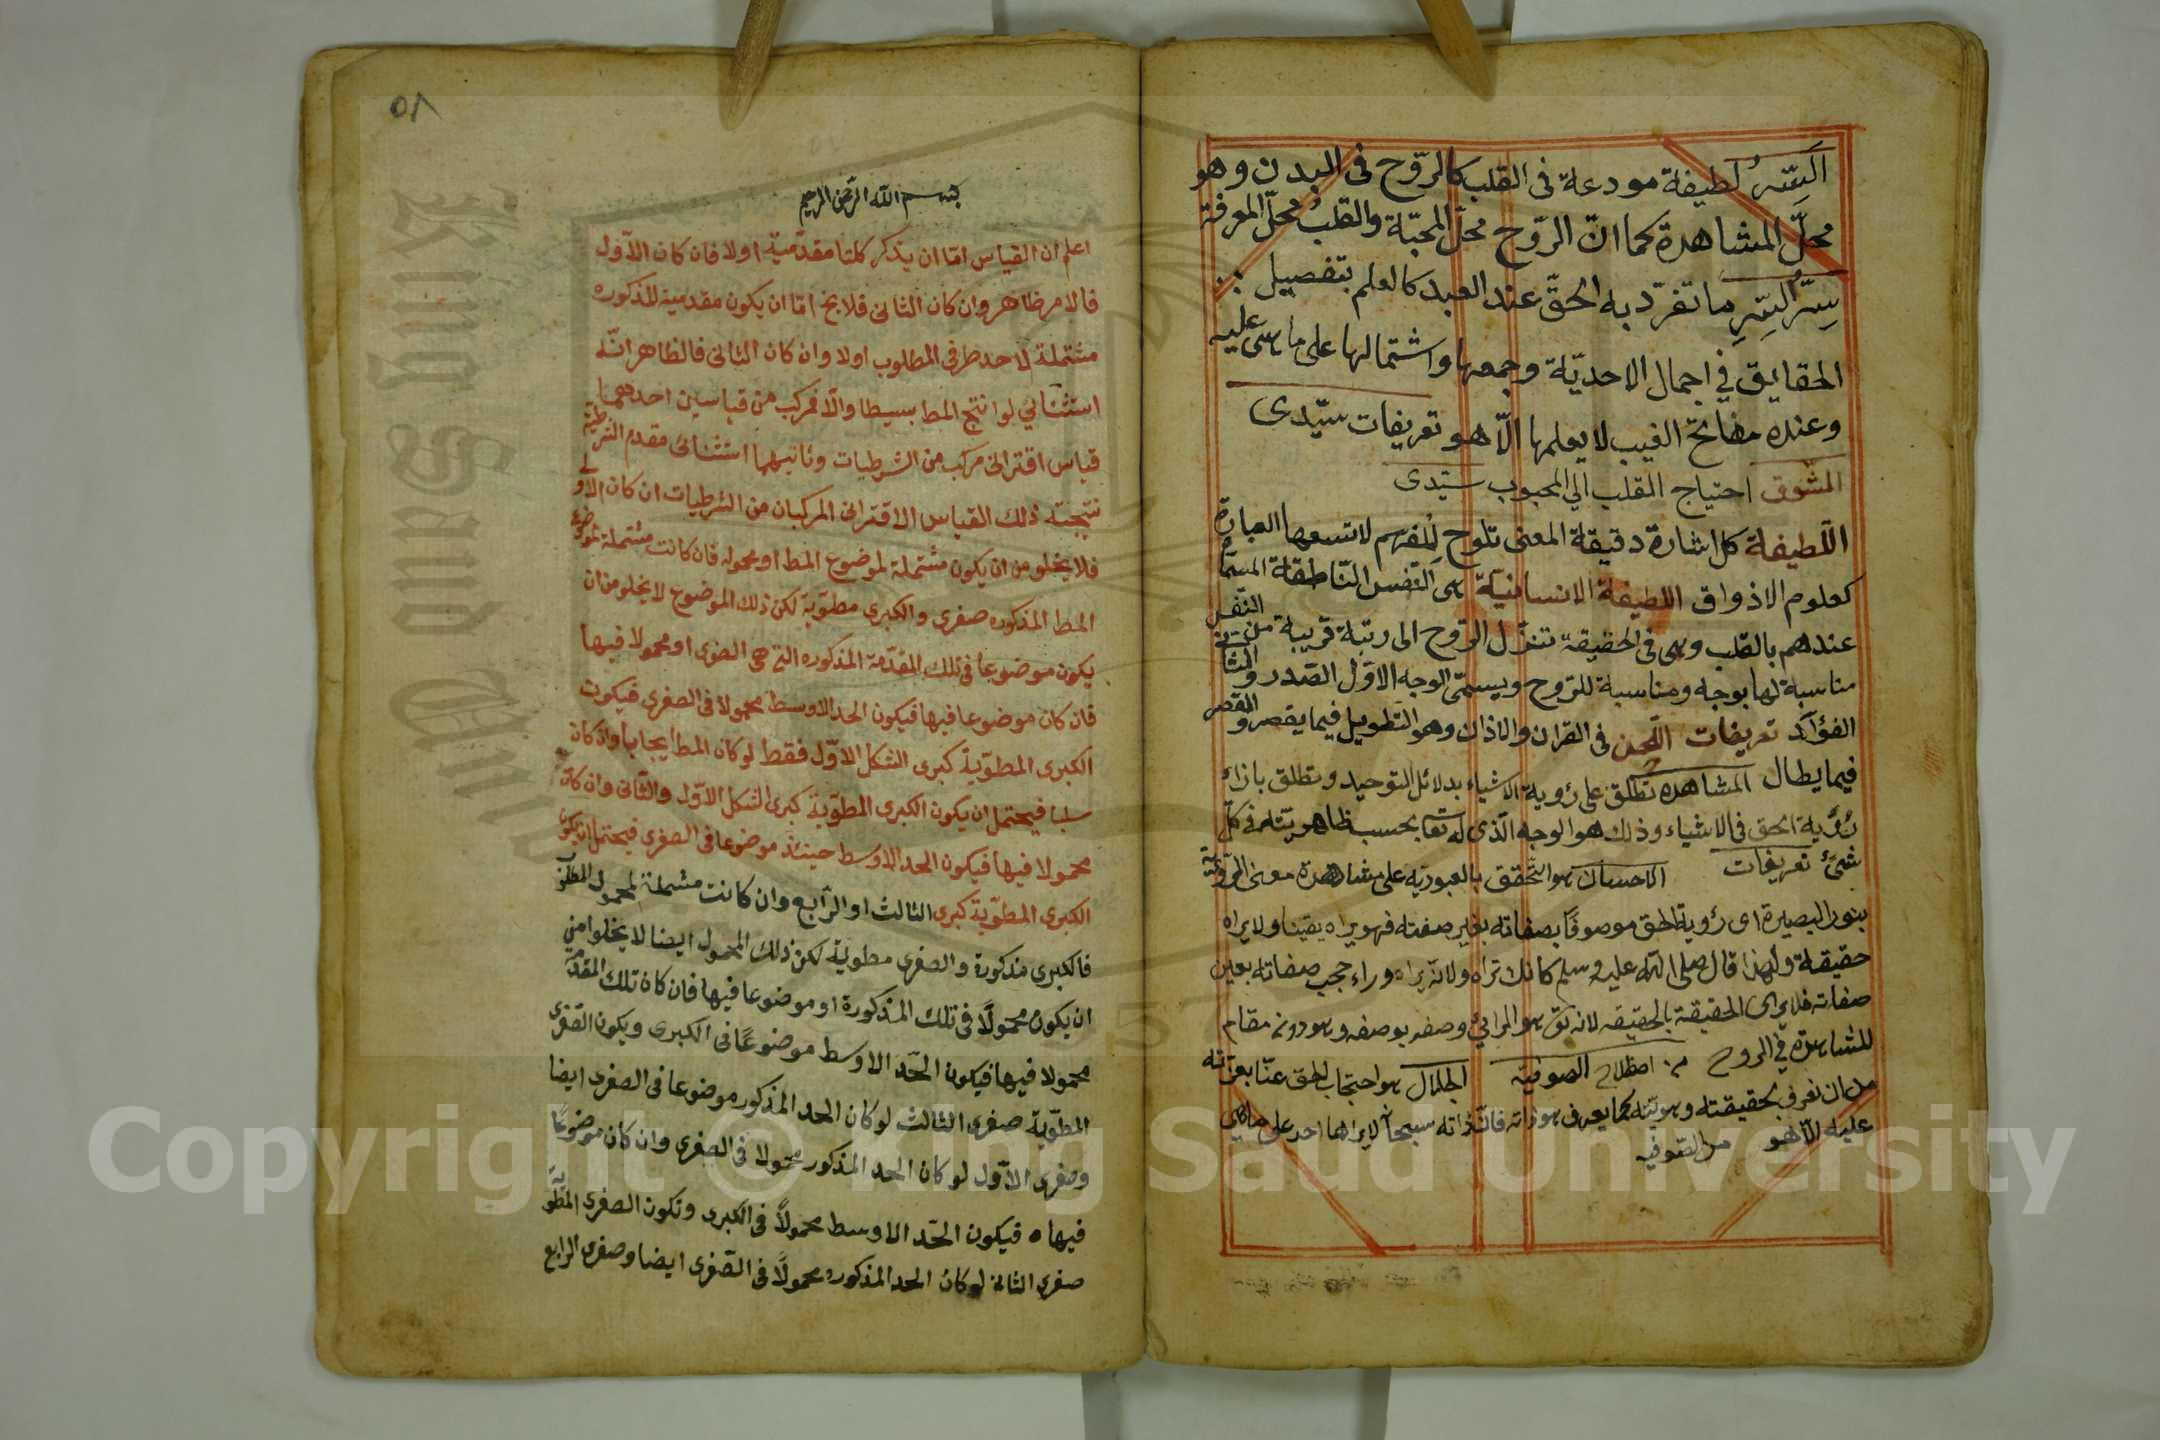 السّرّ لطيفة مودعة فى القلب كالرّوح فى البدن وهو
محلّ المشاهدة كما انّ الرّوح محلّ المحبّة والقلب محلّ المعرفة
سرّ السّرِ ما تفرّد به الحقّ عند العبد كالعلم بتفصيل
الحقايق فى اجمال الاحديّة وجمعها واشتمالها على ما هى عليه
وعنده مفاتح الغيب لا يعلمها الّا هو تعريفات سيّدى
الشوق احتياج القلب الي المحبوب سيّدى
اللّطيفة كل اشارة دقيقة المعنى تلوح للفهم لا تسعها العبارة
كعلوم الاذواق اللطيفة الانسانيّة هى النّفس النّاطقة المسمّاة
عندهم بالقلب وهى فى الحقيقة تنزّل الرّوح الى رتبة قريبة من النفس
مناسبة لها بوجه ومناسبة للرّوح ويسمّى الوجه الاوّل الصّدر والثانى
الفؤآد تعريفات اللّحن فى القران والاذان وهو التّطويل فيما يقصر والقصر
فيما يطال المشاهدة تطلق على رؤية الاشياء بدلائل التوحيد وتطلق بازاء
رؤية الحق فى الاشياء وذلك هو الوجه الّذى له تعا بحسب ظاهريّته فى كلّ
شئ تعريفات الاحسان هو التّحقق بالعبوديّة على مشاهدة
بنور البصيرة اى رؤية الحق موصوفًا بصفاته بغير صفته فهو يراه يقينا ولا يراه
حقيقة ولهذا قال صلى اللّه عليه وسلم كانك تراه ولانّه يراه وراء حجب صفاته بعين
صفاته فلا يرى الحقيقة بالحقيقة لانه تع هو الرائى وصفه بوصفه وهو دون مقام
المشاهدة فى الروح من اصطلاح الصوفيّة الجلال هو احتجاب الحق عنّا بعزّته
من ان نعرفه بحقيقته وهويّته كما يعرف هو ذاته فانّ ذاته سبحا لا يراها احد على ما هى
عليه الّا هو من الصّوفيه
٥٨
بسم اللّه الرّحمن الرحيم
اعلم ان القياس امّا ان يذكر كلتا مقدّمتيه اولا فان كان الاّول
فالامر ظاهر وان كان الثانى فلا يخ امّا ان يكون مقدمته المذكوره
مشتملة لاحد طرفى المطلوب اولا وان كان الثانى فالظاهر انّه
استثنائي لو انتج المط بسيطا والّا فمركب من قياسين احدهما
قياس اقترانى مركب من الشرطيات وثانيهما استثنائى مقدم الشرطيّة
نتيجته ذلك القياس الاقترانى المركبان من الشرطيات ان كان الاوّل
فلا يخلو من ان يكون مشتملة لموضوع المط او محموله فان كانت مشتملة لموضوع
المط المذكوره صغرى والكبرى مطويّة لكن ذلك الموضوع لا يخلو من ان
يكون موضوعا فى تلك المقدّمة المذكوره التى هى الصغرى او محمولا فيها
فان كان موضوعا فيها فيكون الحد الاوسط محمولا فى الصغرى فيكون
الكبرى المطويّة كبرى الشكل الاوّل فقط لو كان المط ايجابا واذ كان
سلبا فيحتمل ان يكون الكبرى المطويّة كبرى الشكل الاوّل والثّانى وان كان
محمولا فيها فيكون الحد الاوسط حينئذ موضوعا فى الصغرى فيحتمل ان يكون
الكبرى المطويّة كبرى الثالث او الرّابع وان كانت مشتملة لمحمول المط
فالكبرى مذكورة والصغرى مطوية لكن ذلك المحمول ايضا لا يخلوا من
ان يكون محمولًا فى تلك المذكورة او موضوعا فيها فان كان تلك المقدّمة
محمولا فيها فيكون الحّد الاوسط موضوعًا فى الكبرى ويكون الصّغرى
المطويّة صغرى الثالث لو كان الحد المذكور موضوعا فى الصغرى ايضا
وصغرى الاّول لو كان الحد المذكور محمولا فى الصغرى وان كان موضوعًا
فيها فيكون الحّد الاوسط محمولاً فى الكبرى وتكون الصغرى المطويّة
صغرى الثانى لو كان الحد المذكوره محمولاً فى الصّغرى ايضا وصغرى الرابع
King Saud
Copyright © King Saud University